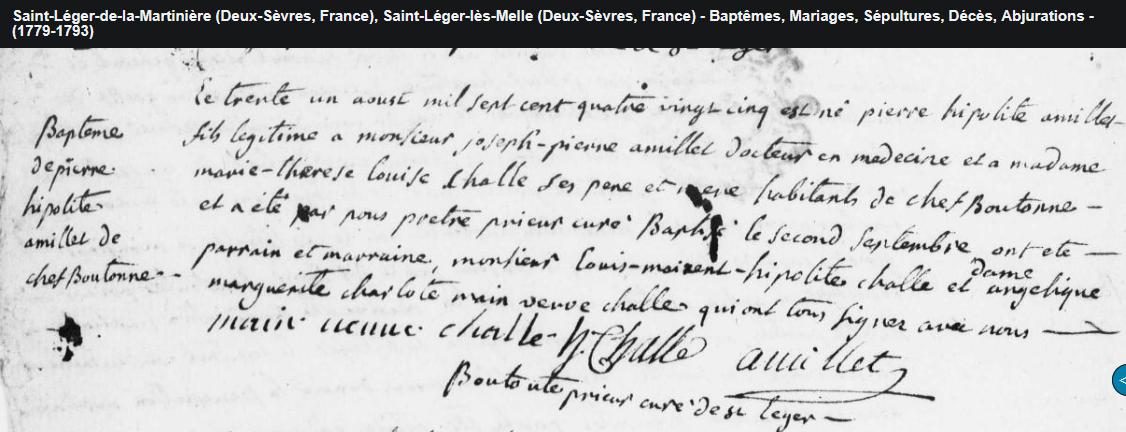 Saint-Léger-de-la-Martinière (Deux-Sèvres, France), Saint-Léger-lès-Melle (Deux-Sèvres, France) - Baptêmes, Mariages, Sépultures, Décès, Abjurations -
(1779-1793)
Baptême
de pierre
hipolite
amillet de
chef Boutonne
Le trente un aoust mil sept cent quatre vingt cinq est né pierre hipolite amillet
fils legitime a monsieur joseph-pierre amillet docteur en medecine et a madame
marie-therese louise challe ses pere et mere habitants de chef Boutonne
et a été par nous pretre prieur curé Baptisé le second septembre, ont ete
parrain et marraine, monsieur louis-maixent-hipolite challe et dame angelique
marguerite charlote main veuve challe qui ont tous signer avec nous
main veuve challe h Challe amillet
Boutoute prieur curé de st leger